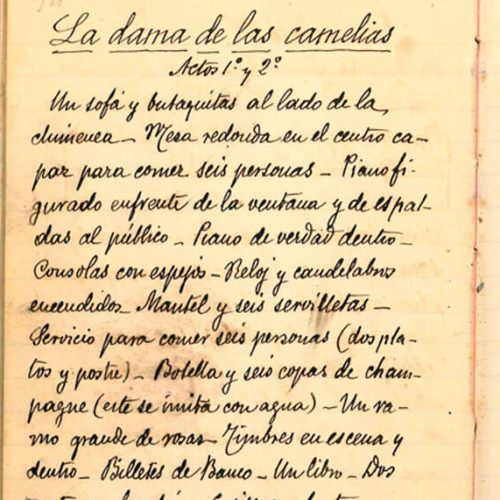 La dama de las camelias
Actos 1º y 2º
Un sofá y butaquitas al lado de la
chimenea — Mesa redonda en el centro ca-
paz para comer seis personas — Piano fi-
gurado enfrente de la ventana y de espal-
das al público — Piano de verdad dentro —
Consolas con espejos — Reloj y candelabros
encendidos — Mantel y seis servilletas —
Servicio para comer seis personas (dos pla-
tos y postre) — Botella y seis copas de cham-
pagne (este se imita con agua) — Un ra-
mo grande de rosas — Timbres en escena y
dentro — Billetes de Banco — Un libro — Dos